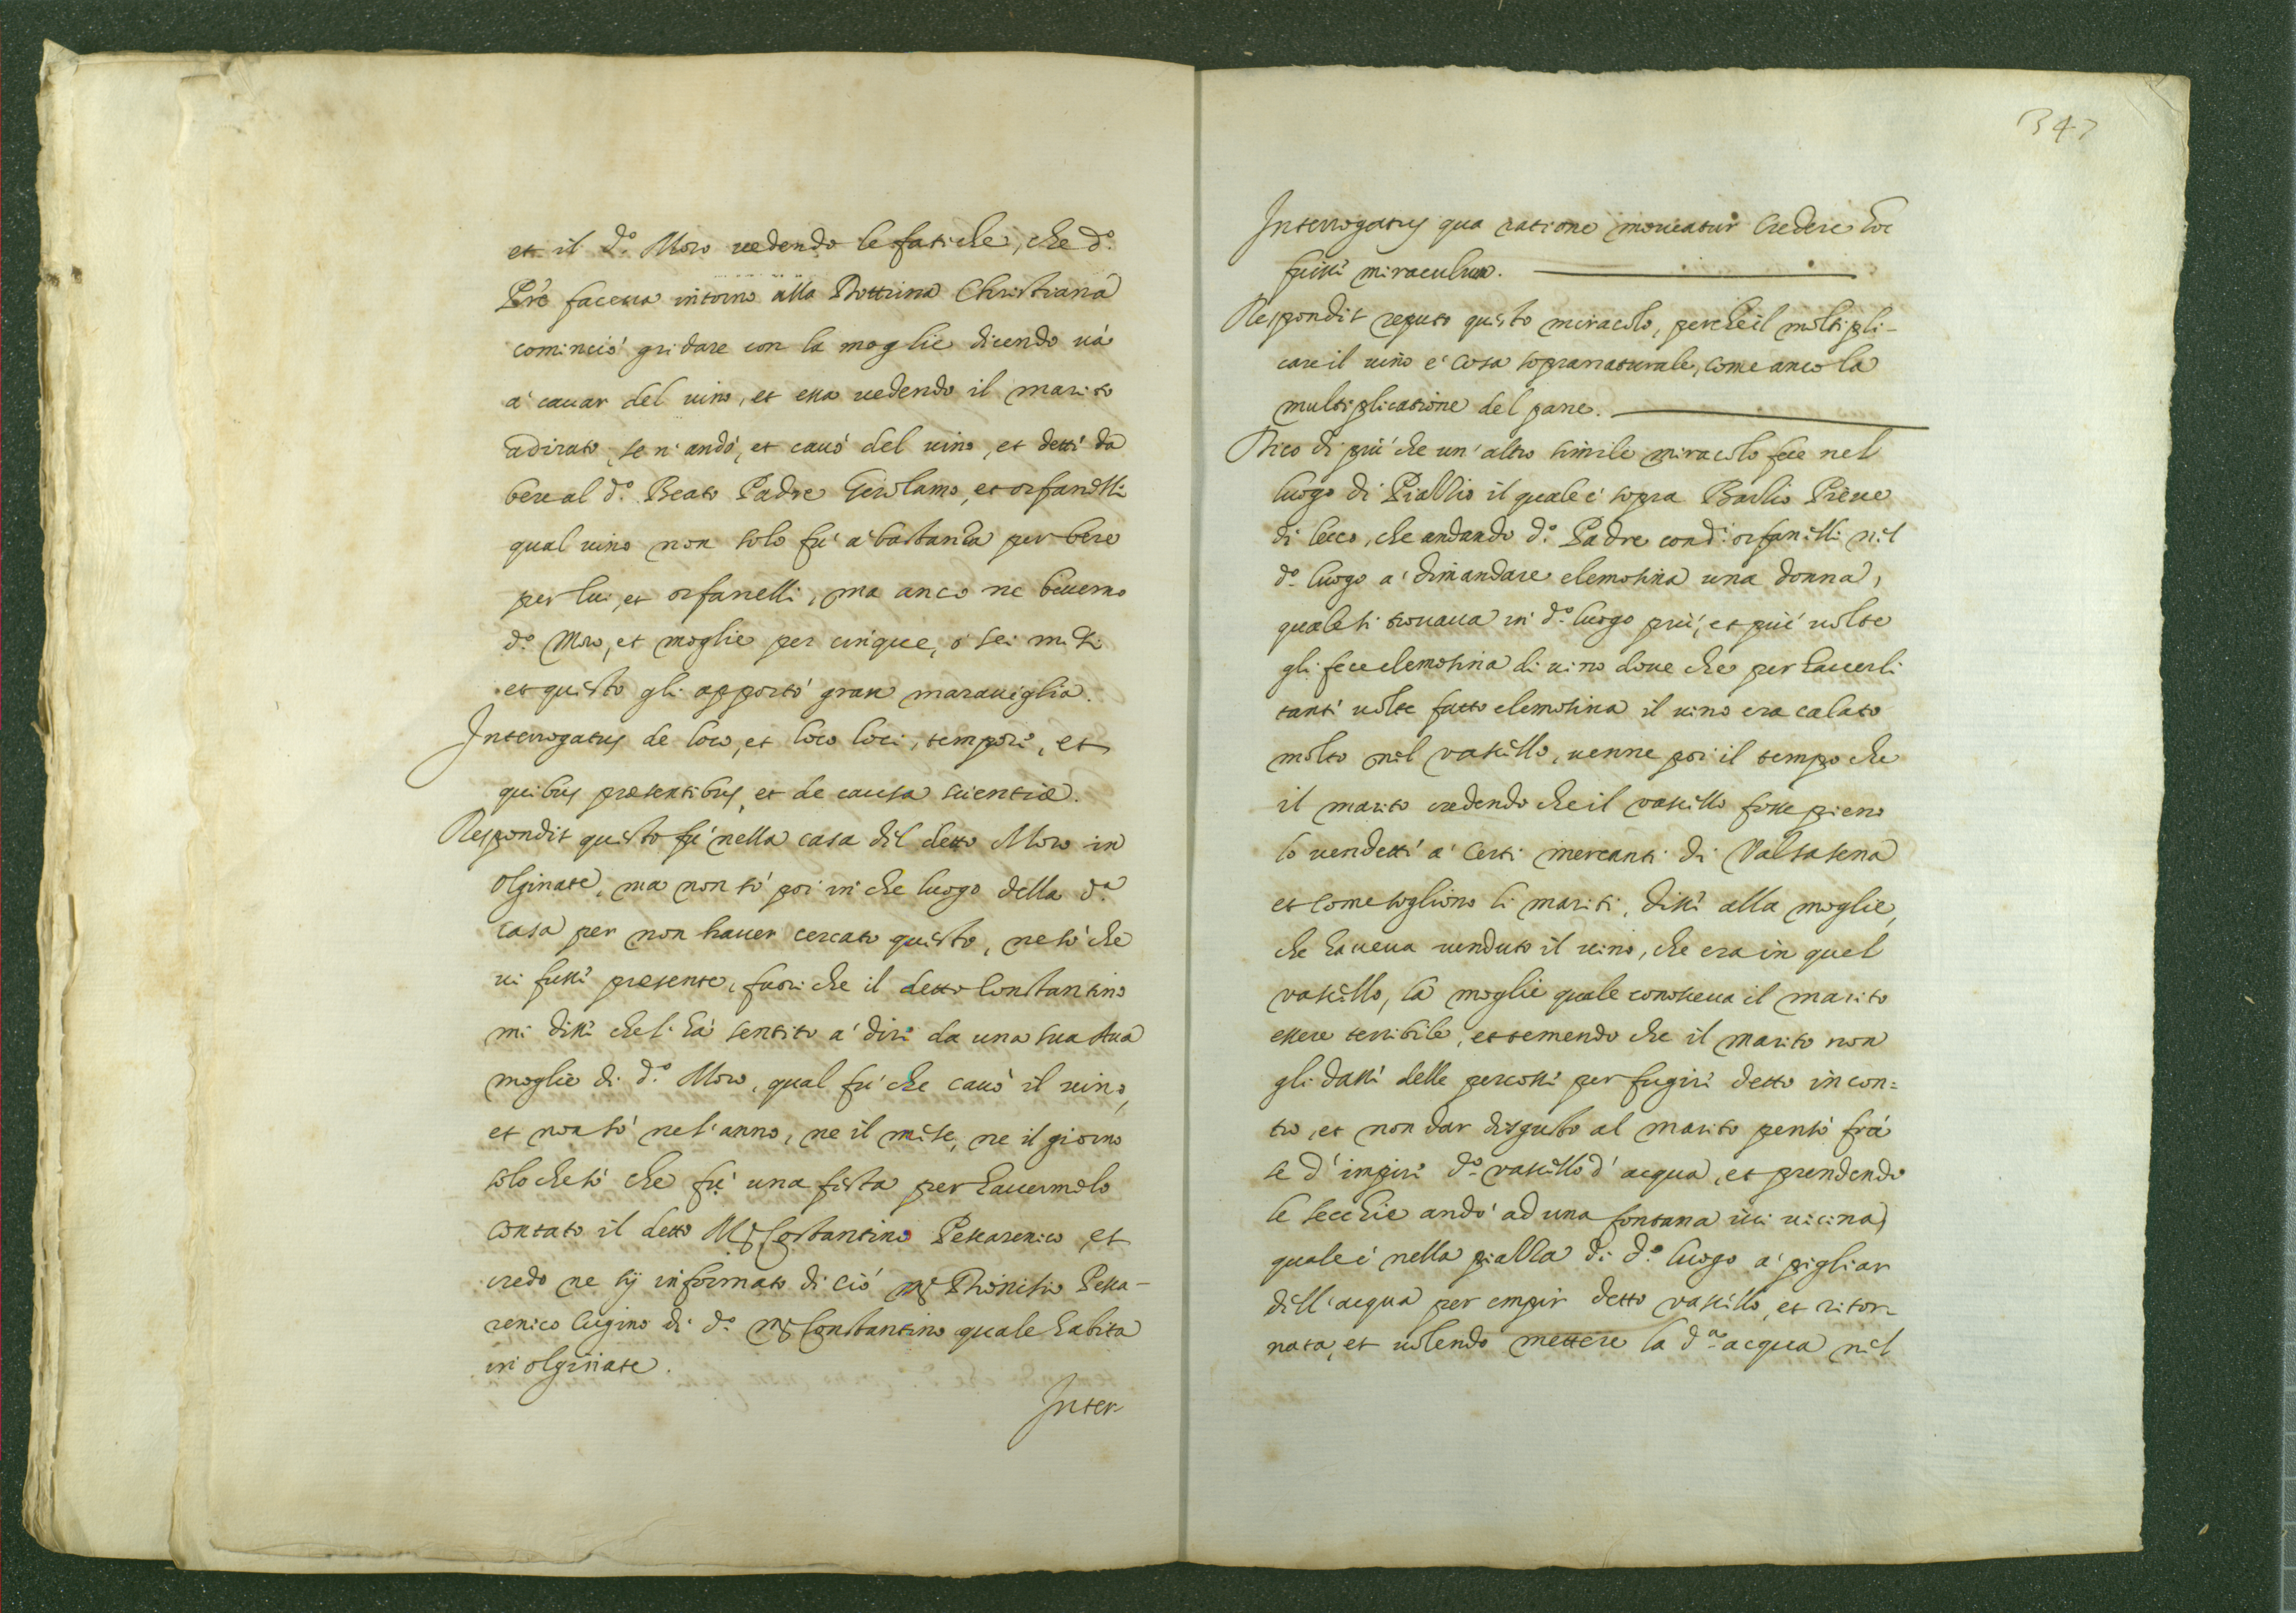 et il d.º Moro uedendo le fatiche, che d.º
Pré faceua intorno alla Dottrina Christiana
cominciò gridare con la moglie dicendo uà
à cauar del uino, et essa uedendo il marito
adirato, se n'andò, et cauò del uino, et dette da
bere al d.º Beato Padre Gerolamo, et orfanelli
qual uino non solo fù à bastanza per bere
per lui, et orfanelli, ma anco ne beuerno
d.º Moro, et moglie per cinque, ò sei mesi
et questo gli apportò gran marauiglia.
Interrogatus de loco, et loco loci, tempore, et
quibus presentibus, et de causa scientiæ.
Respondit questo fù nella casa del detto Moro in
Olginate, ma non sò poi in che luogo della d.ª
casa per non hauer cercato questo, ne sò che
ui fusse presente, fuori che il detto Constantino
mi disse che l'hà sentito à dire da una sua Aua
moglie di d.º Moro, qual fù che cauò il uino,
et non sò ne l'anno, ne il mese, ne il giorno
solo che sò che fù una festa per hauermelo
contato il detto M.ʳ Costantino Pessarenico, et
credo ne sij informato di ciò m.ʳ Dionisio Pessa-
renico Cugino di d.º m.ʳ Constantino quale habita
in olginate.
Inter-
347
Interrogatus qua ratione moueatur credere hoc
fuisse miraculum.
Respondit reputo questo miracolo, perche il moltipli-
care il uino è cosa sopranaturale, come anco la
multiplicatione del pane.
Dico di più che un'altro simile miracolo fece nel
luogo di Piallio il quale è sopra Barlio Pieue
di Lecco, che andando d.º Padre con d.i orfanelli nel
d.º luogo à dimandare elemosina una donna,
quale si trouaua in d.º luogo più, et più uolte
gli fece elemosina di uino doue che per hauerli
tante uolte fatto elemosina il uino era calato
molto nel vassello, uenne poi il tempo che
il marito credendo che il vassello fosse pieno
lo uendette à certi mercanti di Valsasena
et come sogliono li mariti, disse alla moglie,
che haueua uenduto il uino, che era in quel
vassello, la moglie quale conosceua il marito
essere terribile, et temendo che il marito non
gli dasse delle percosse per fugire detto incon=
tro, et non dar disgusto al marito pensò frà
se d'impire d.º vassello d'acqua, et prendendo
le secchie andò ad una fontana iui uicina,
quale è nella pialla di d.º luogo à pigliar
dell'acqua per empir detto vassello, et ritor-
nata, et uolendo mettere la d.ª acqua nel